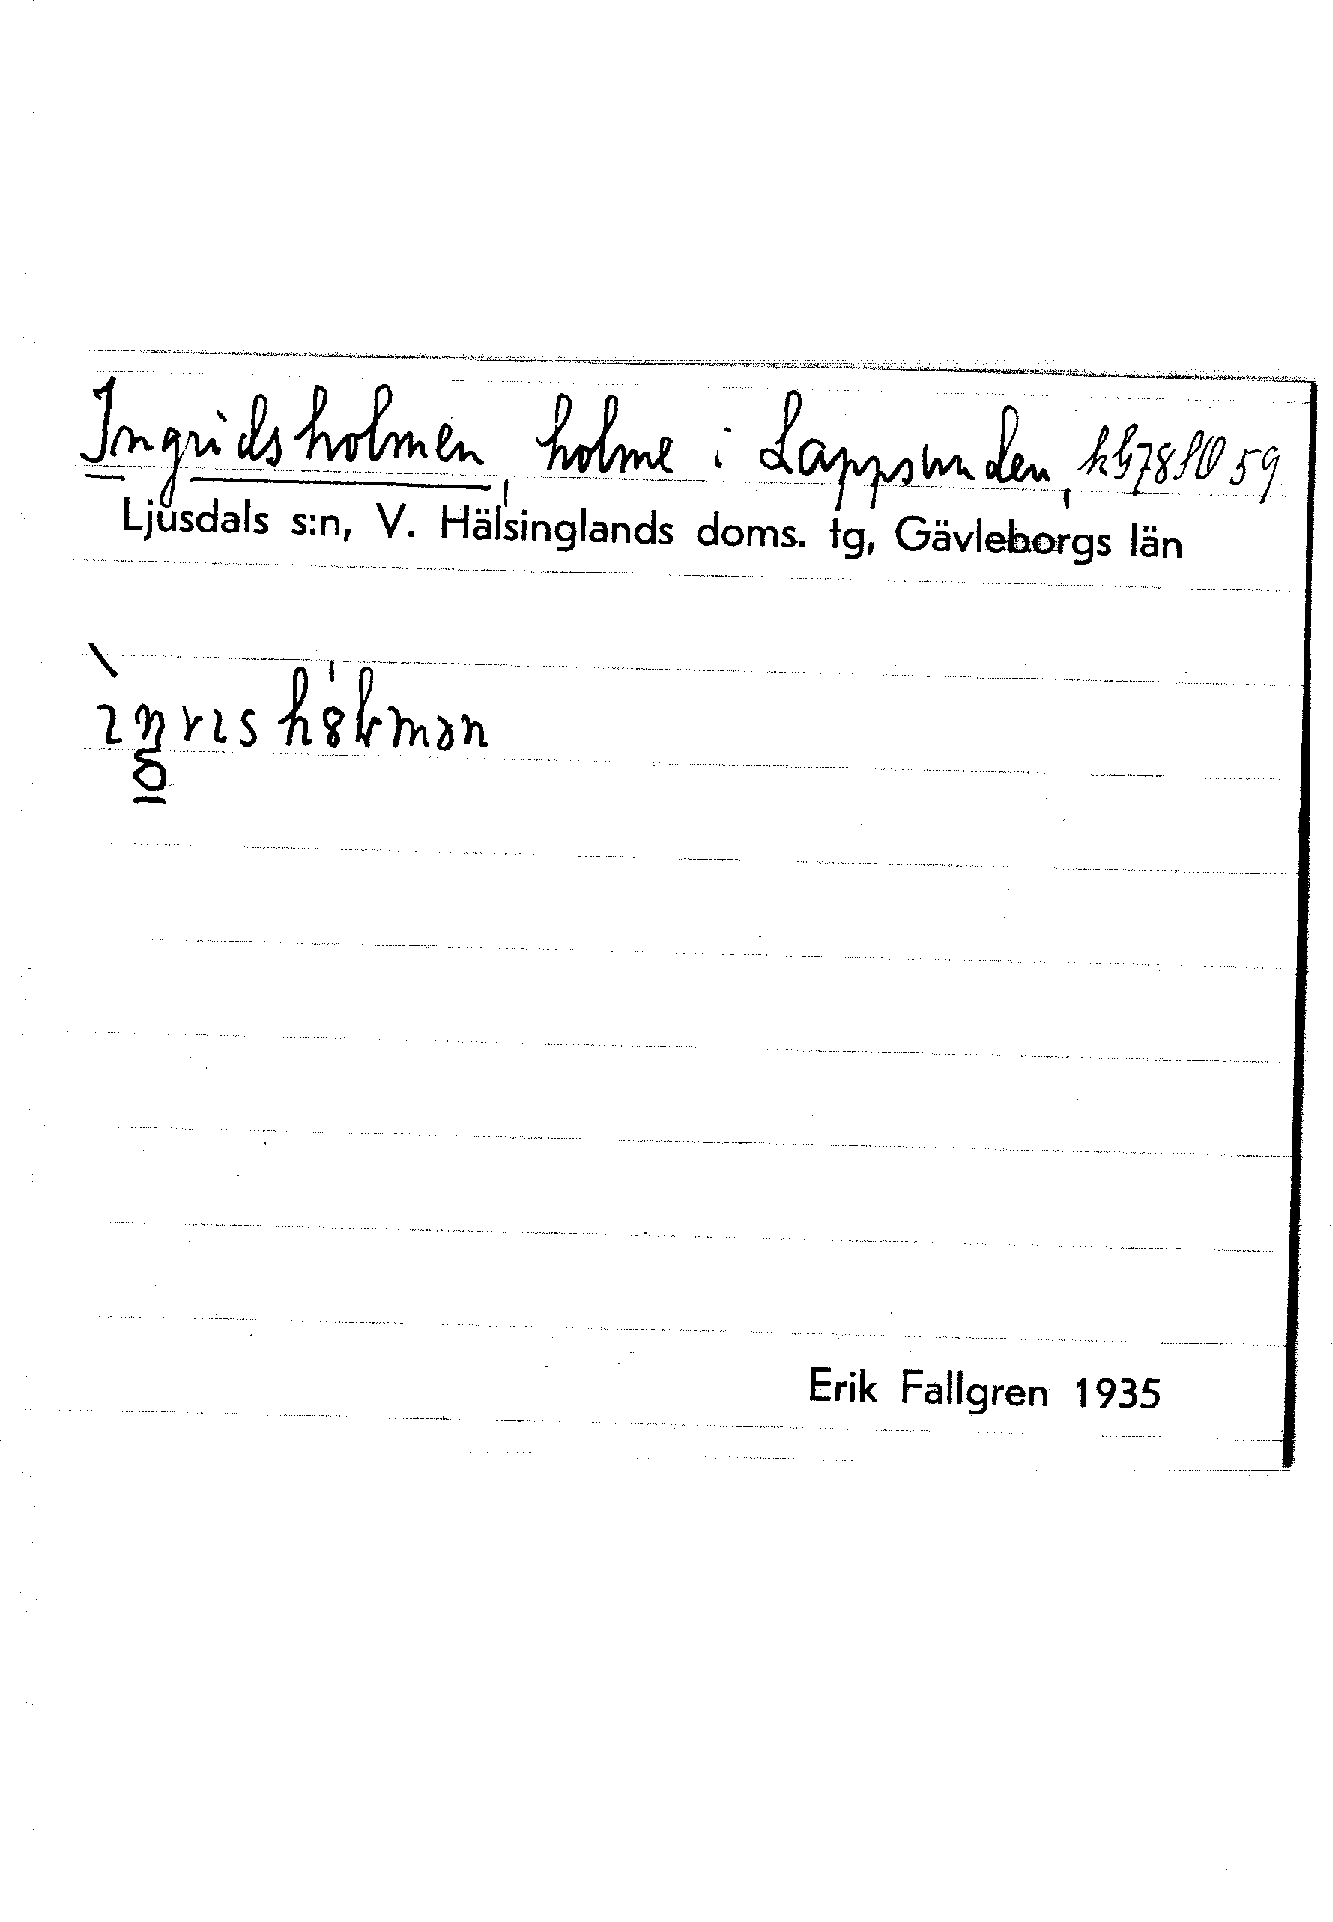 Ingridsholmen, holme i Lappsunden,
Ljusdals s:n, V. Hälsinglands doms. tg, Gävleborgs län
Erik Fallgren 1935